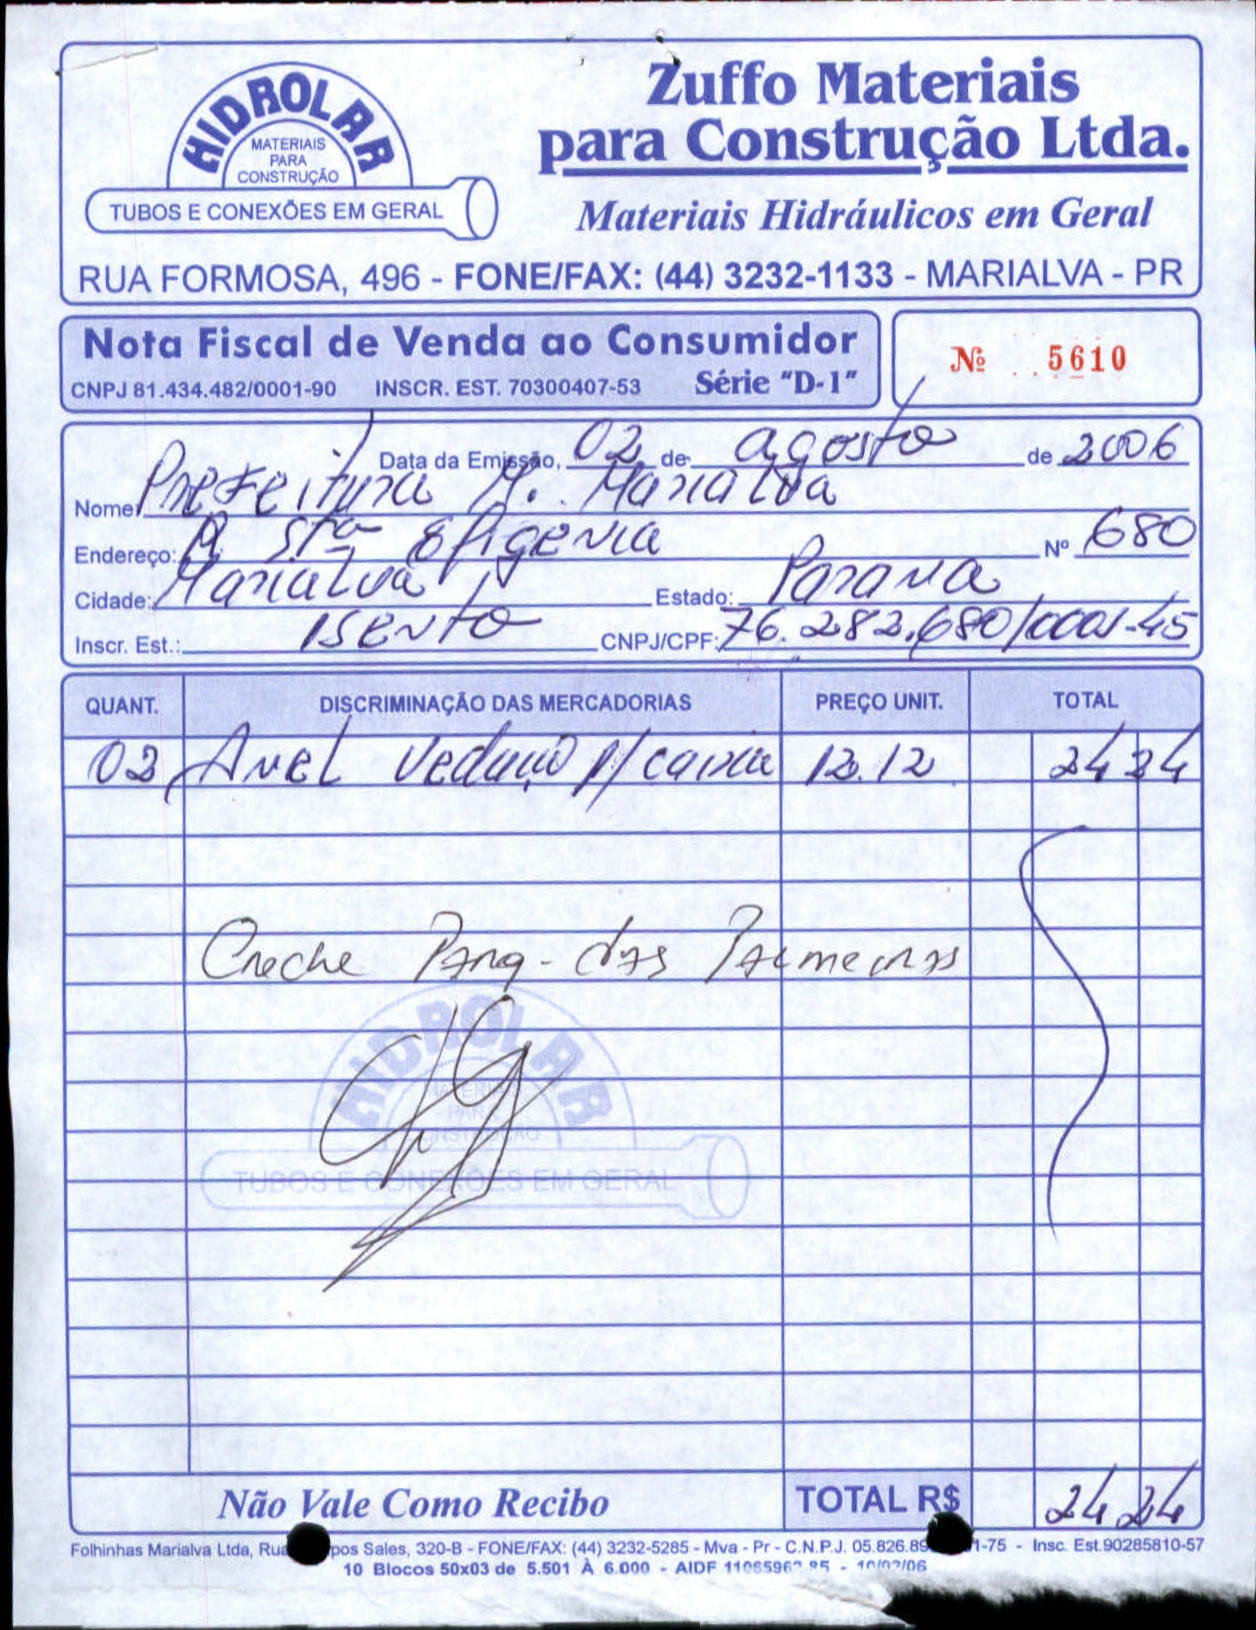 HIDROLAR
MATERIAIS
PARA
CONSTRUÇÃO
TUBOS E CONEXÕES EM GERAL
Zuffo Materiais
para Construção Ltda.
Materiais Hidráulicos em Geral
RUA FORMOSA, 496 - FONE/FAX: (44) 3232-1133 - MARIALVA - PR
Nota Fiscal de Venda ao Consumidor
CNPJ 81.434.482/0001-90 INSCR. EST. 70300407-53 Série "D-1"
Nº 5610
Data da Emissão, 02 de agosto de 2006
Nome: Prefeitura M. Marialva
Endereço: R Sta Efigenia Nº 680
Cidade: Marialva Estado: Parana
Inscr. Est.: isento CNPJ/CPF: 76.282.680/0001-45
QUANT. DISCRIMINAÇÃO DAS MERCADORIAS PREÇO UNIT. TOTAL
02 Anel Vedação p/ caixa 12.12 24 24
Creche Parq. das Palmeiras
HIDROLAR
MATERIAIS
PARA
CONSTRUÇÃO
TUBOS E CONEXÕES EM GERAL
Não Vale Como Recibo TOTAL R$ 24 24
Folhinhas Marialva Ltda, Rua pos Sales, 320-B - FONE/FAX: (44) 3232-5285 - Mva - Pr - C.N.P.J. 05.826.89 1-75 - Insc. Est.90285810-57
10 Blocos 50x03 de 5.501 À 6.000 - AIDF